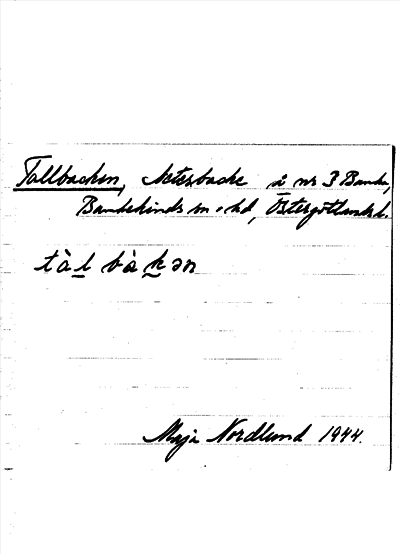 Tallbacken, betesbacke å nr 3 Banke,
Bankekinds sn o. hd, Östergötlands l.
tàl bàkən
Maja Nordlund 1944.